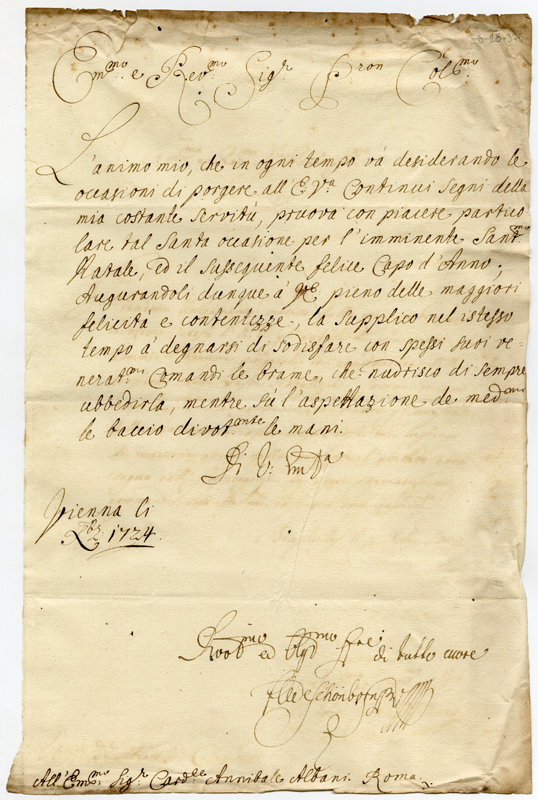 Em.mo e Rev.mo Sig.r P.ron Col.mo
L'animo mio, che in ogni tempo và desiderando le
occasioni di porgere all E. V.a Continui segni della
mia costante servitù, pruova con piacere partico
lare tal santa occasione per l'imminente Sant.mo
Natale, ed il susseguente felice Capo d'Anno.
Augurandoli dunque à pieno delle maggiori
felicità e contentezze, la supplico nel istesso
tempo à degnarsi di sodisfare con spessi suoi ve-
nerat.mi Comandi le brame, che nudrisco di sempre
ubbedirla, mentre sù l'aspettazione de med.mi
le baccio divot.ante le mani.
Di V: Em.za
Vienna li
Xbr 1724.
ed di tutto cuore
de Schönborn
All'Em.mo Sig.r Card.le Annibale Albani. Roma.